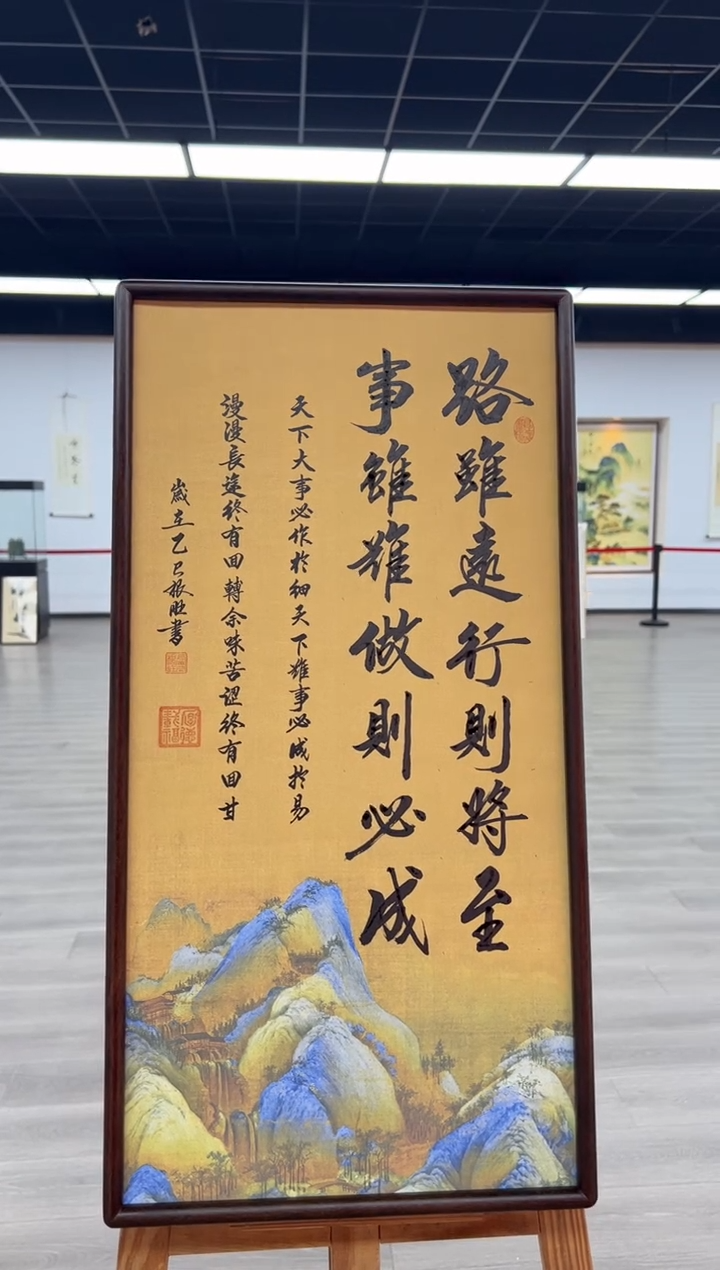 路雖遠行則將至
事雖難做則必成
天下大事必作於細天下難事必成於易
漫漫長途終有回轉余味苦涩終有回甘
歲在乙巳根旺書